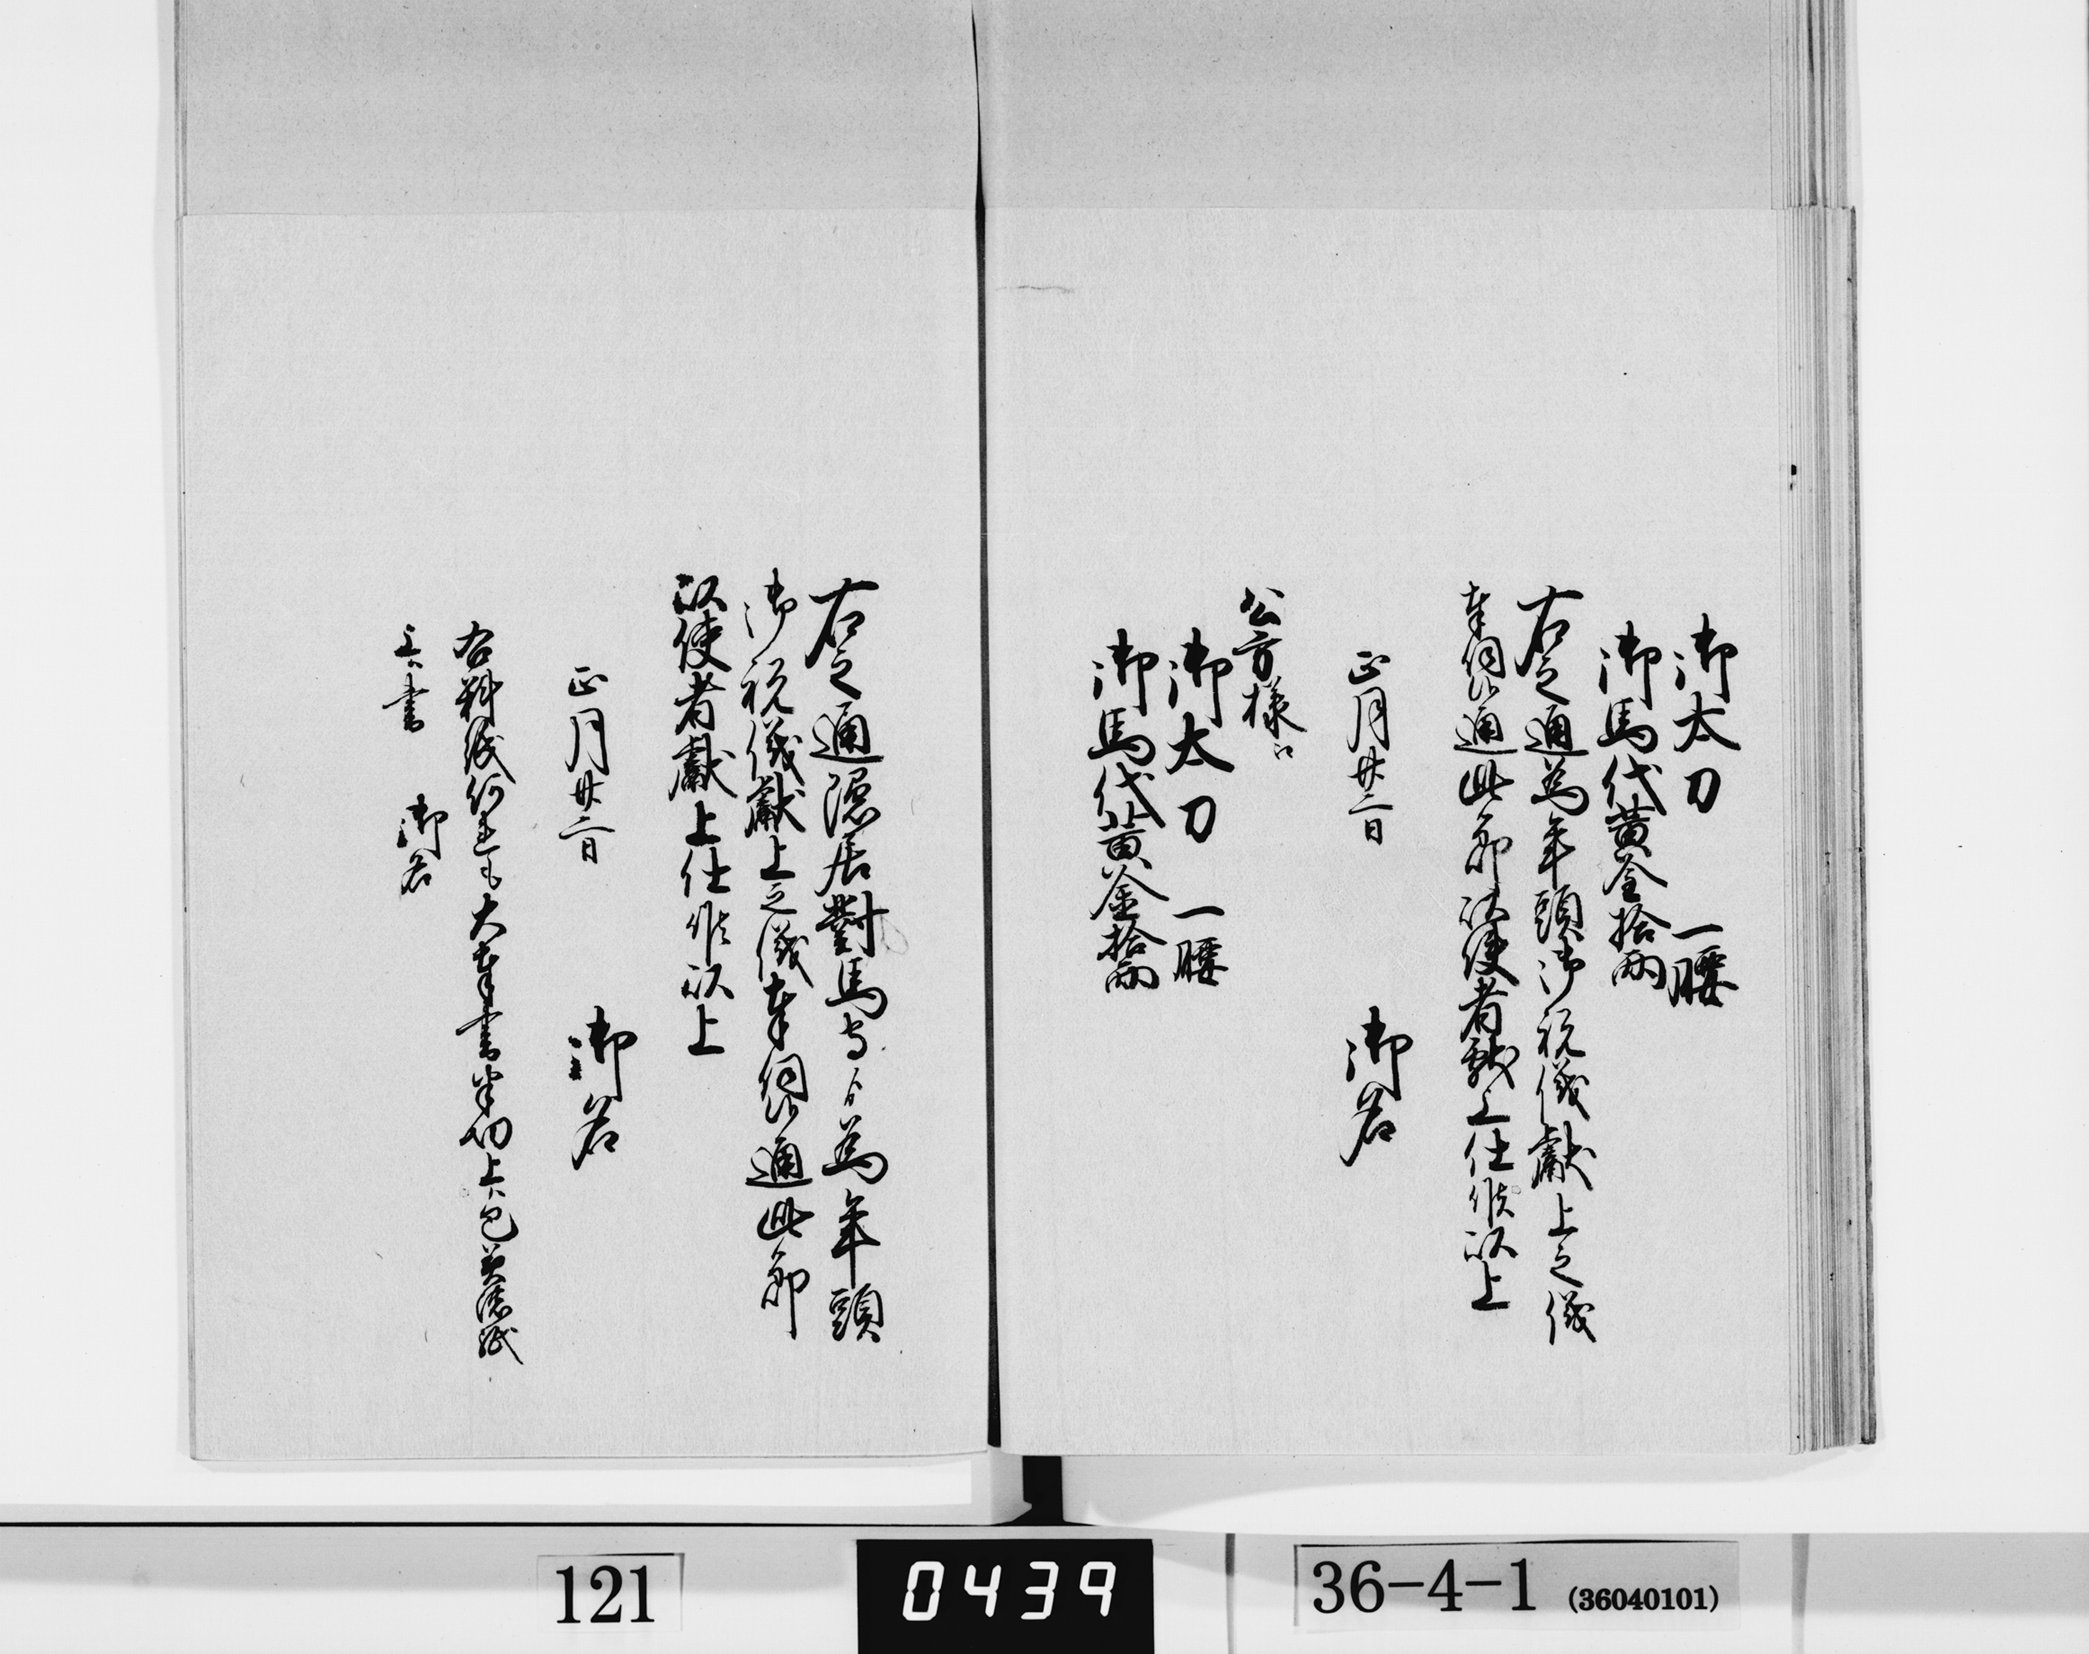 御太刀 一腰
御馬代黄金拾両
右之通為年頭御祝儀献上之儀
奉伺候通此節以使者献上仕候以上
正月廿二日 御名
公方様江
御太刀 一腰
御馬代黄金拾両
右之通隠居對馬守より為年頭
御祝儀獻上之儀奉伺候通此節
以使者獻上仕候以上
正月廿二日 御名
右料紙何連も大奉書半切上ハ包美濃紙
上ハ書 御名
121
0439
36-4-1 (36040101)